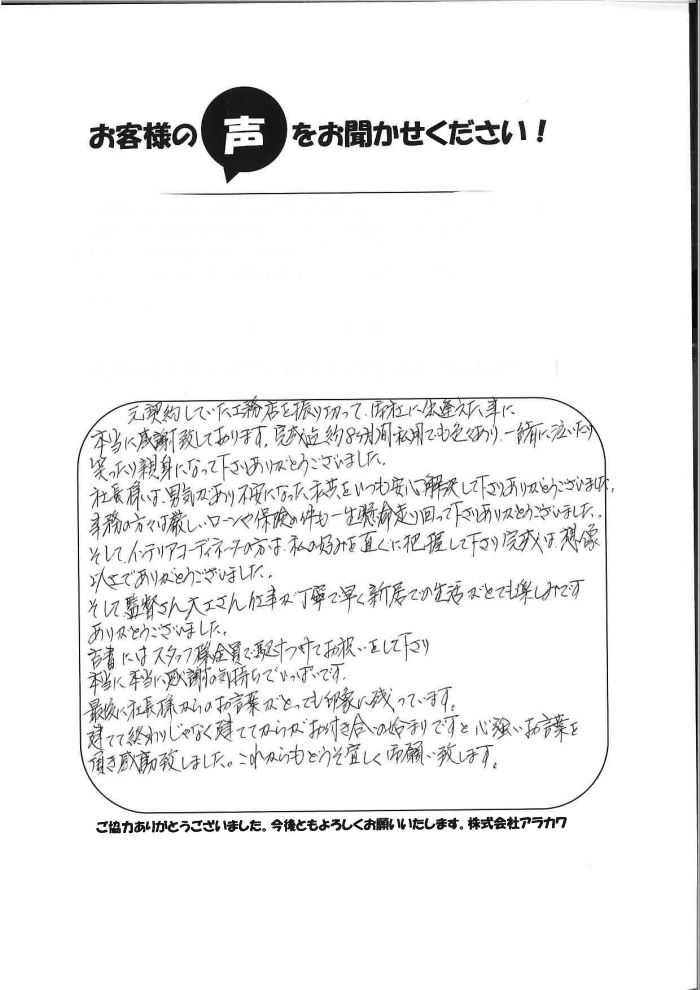 お客様の声をお聞かせください！
元契約していた工務店を振り切って、御社に出逢えた事に
本当に感謝致しております。完成迄約8ヶ月間私用でも色々あり、一緒に泣いたり
笑ったり親身になって下さりありがとうございました。
社長様は、男気があり不安になった私共をいつも安心解決して下さりありがとうございました。
事務の方々は厳しいローンや保険の件も一生懸命走り回って下さりありがとうございました。
そして、インテリアコーディネーターの方は、私の好みを直ぐに把握して下さり完成は、想像
以上でありがとうございました。
そして監督さん大工さん仕事が丁寧で早く新居での生活がとても楽しみです
ありがとうございました。
にはスタッフ様全員で駆けつけてお祝いをして下さり
本当に本当に感謝の気持ちでいっぱいです。
最後に社長様からのお言葉がとっても印象に残っています。
建てて終わりじゃなく建ててからがお付き合いの始まりですと心強いお言葉を
頂き感動致しました。これからもどうぞ宜しく御願い致します。
ご協力ありがとうございました。今後ともよろしくお願いいたします。株式会社アラカワ